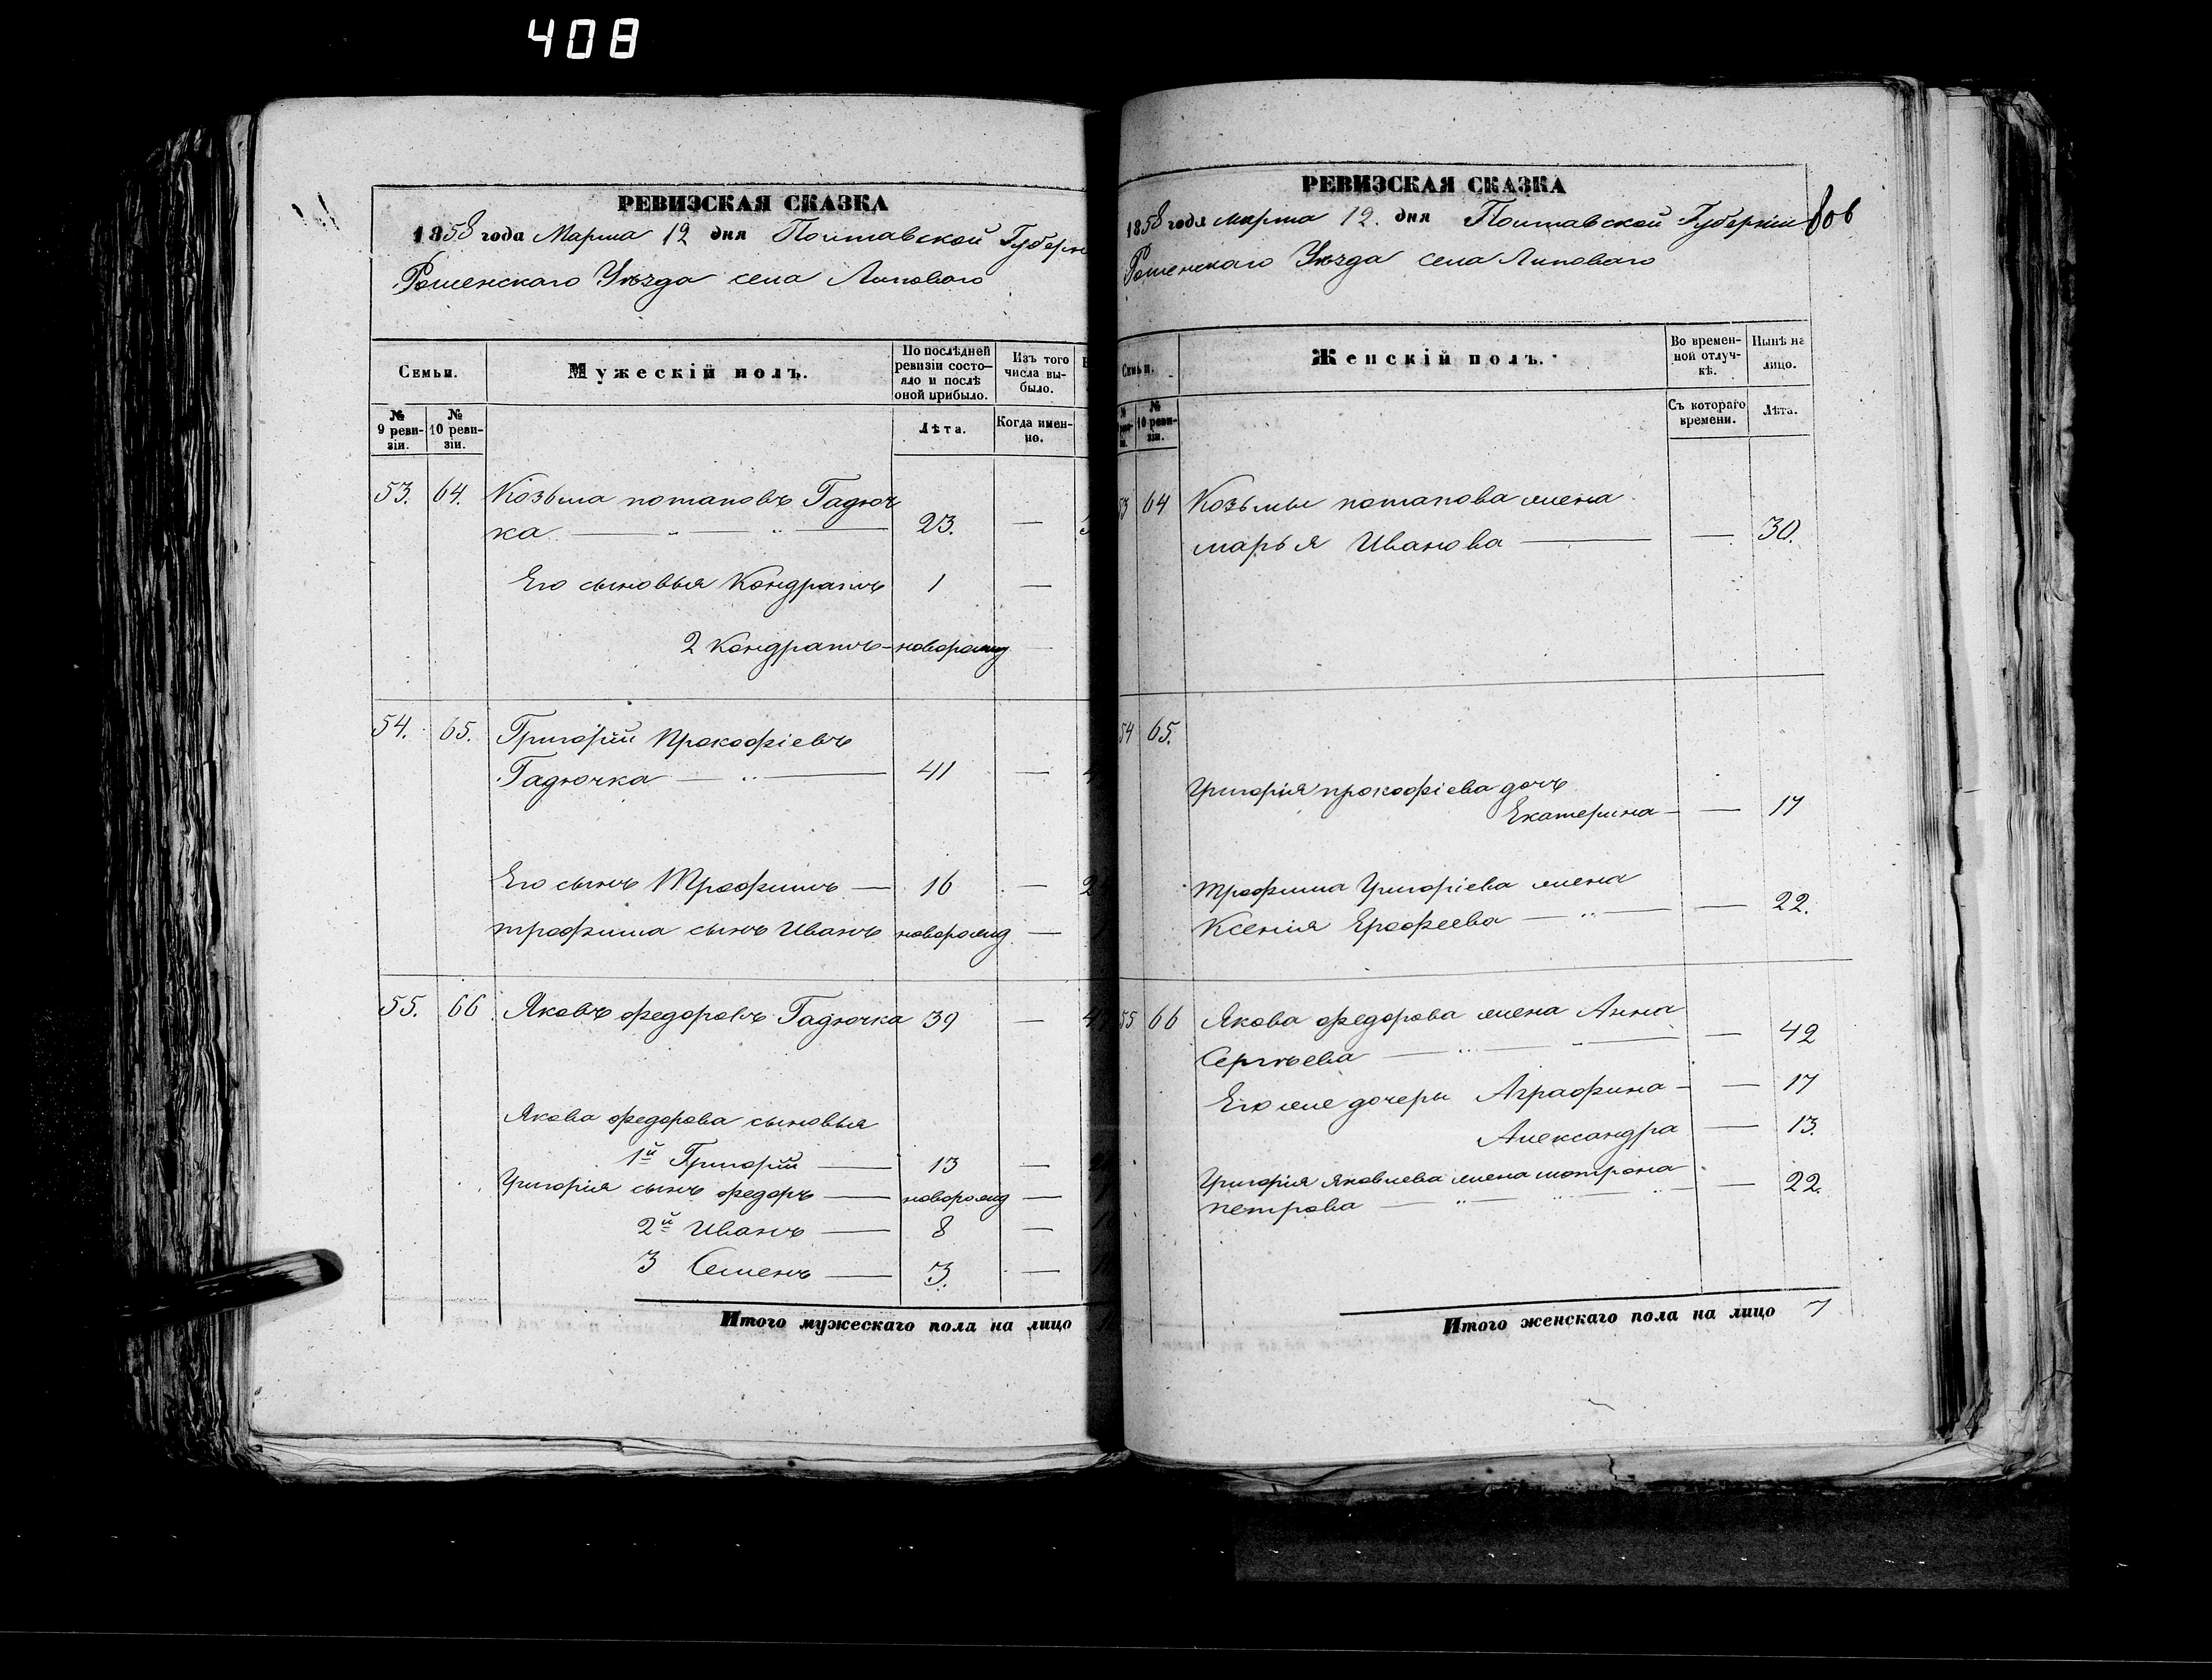 408
РЕВИЗСКАЯ СКАЗКА
1858 года Марта 12 дня Полтавской Губерн
Роменскаго Уѣзда села Липоваго
Семьи.
Мужескій полъ.
По послѣдней ревизіи состояло и послѣ оной прибыло.
Изъ того числа выбыло.
№ 9 ревизіи.
№ 10 ревизіи.
Лѣта.
Когда именно.
53. 64. Козьма потаповъ Гадюч
ка 23. —
Его сыновья Кондратъ 1 —
2 Кондратъ - новорожд —
54. 65. Григорій Прокофіевъ
Гадючка 41 —
Его сынъ Трофимъ — 16 —
трофима сынъ Иванъ новорожд —
55. 66 Яковъ федоровъ Гадючка 39 —
Якова федорова сыновья
1й Григорій — 13 —
Григорія сынъ федоръ — новорожд —
2й Иванъ — 8 —
3 Семенъ — 3. —
Итого мужескаго пола на лицо
РЕВИЗСКАЯ СКАЗКА
1858 года марта 12. дня Полтавской Губерніи 806
Роменскаго Уѣзда села Липоваго
Семьи.
Женскій полъ.
Во временной отлучкѣ.
Нынѣ на лицо.
№ 10 ревизіи.
Съ котораго времени.
Лѣта.
53 64 Козьмы потапова жена
марья Иванова — — 30.
54 65.
Григорія прокофіева дочь
Екатерина — — 17
Трофима Григоріева жена
Ксенія Ерофеева — — 22.
55 66 Якова федорова жена Анна
Сергѣева — — 42
Его же дочери Аграфина — — 17
Александра — 13.
Григорія яковлева жена мотрона
петрова — — 22.
Итого женскаго пола на лицо 7